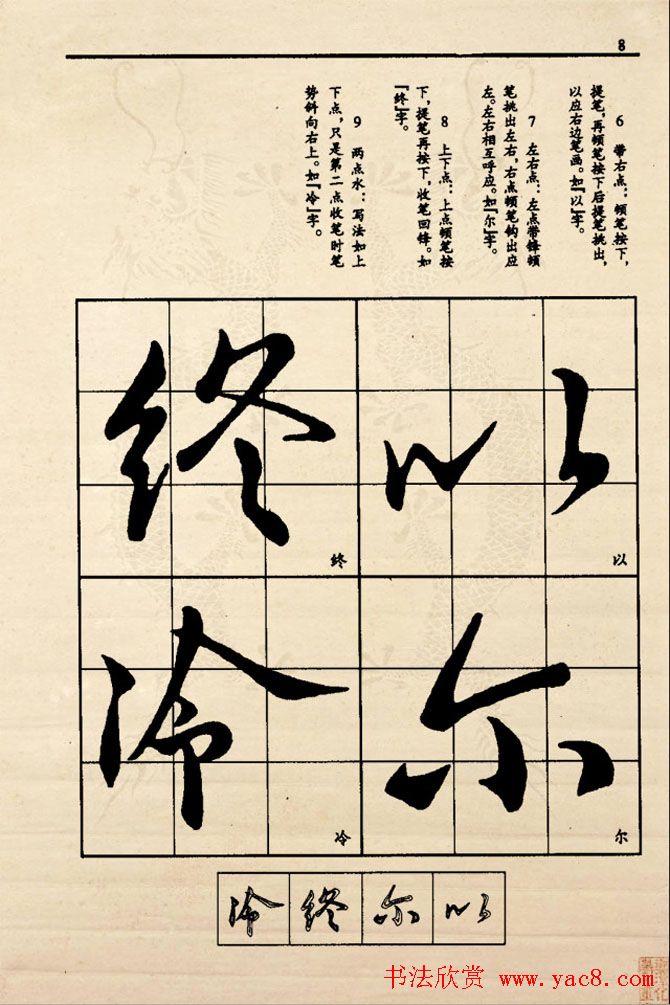 8
6 带右点：顿笔按下，
提笔，再顿笔按下后提笔挑出，
以应右边笔画。如『以』字。
7 左右点：左点带锋顿
笔挑出左右，右点顿笔钩出应
左。左右相互呼应。如『尔』字。
8 上下点：上点顿笔按
下，提笔再按下，收笔回锋。如
『终』字。
9 两点水：写法如上
下点，只是第二点收笔时笔
势斜向右上。如『冷』字。
以
以
终
终
尔
尔
冷
冷
以
尔
终
冷
书法欣赏 www.yac8.com